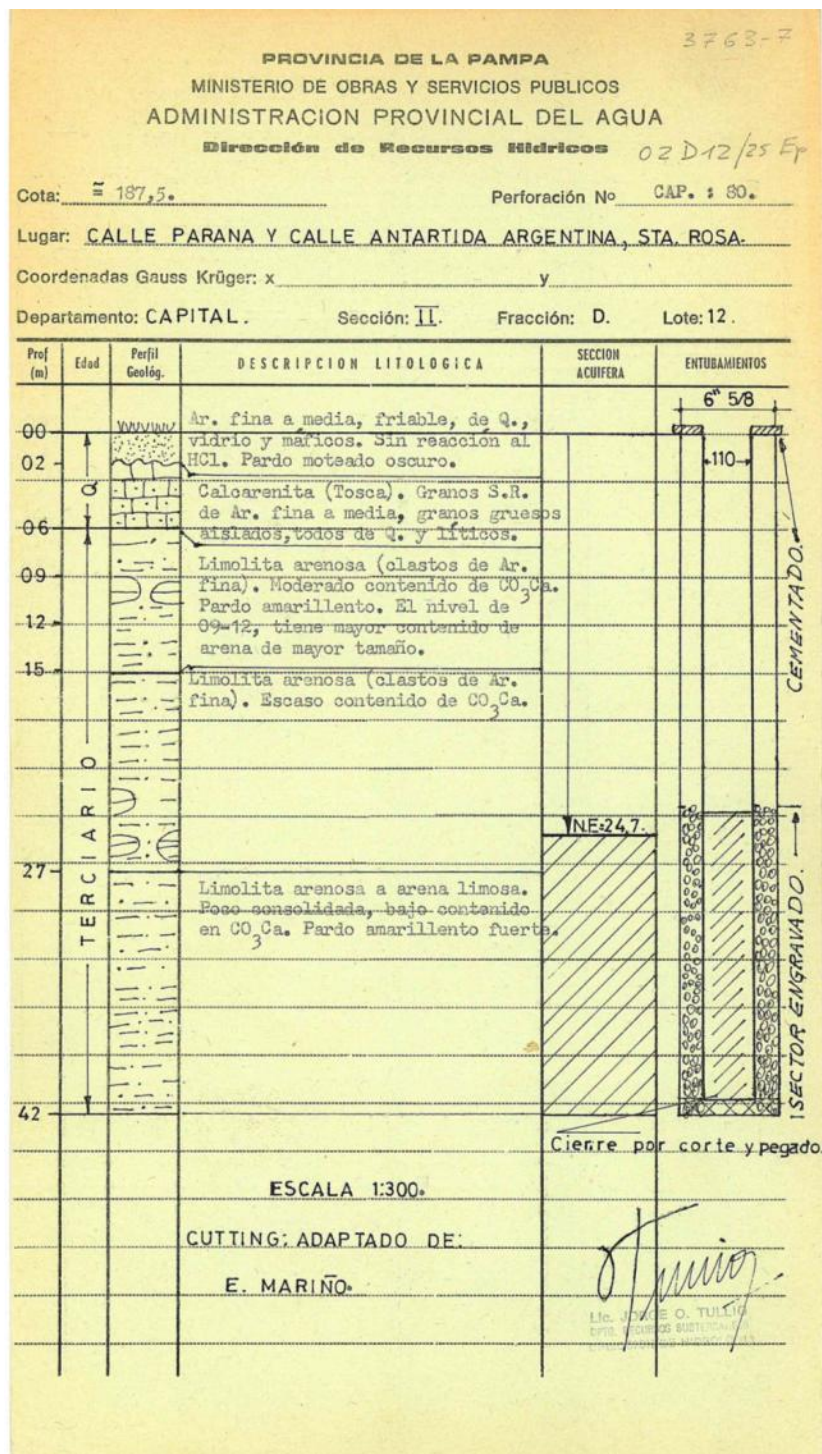 3763-7
PROVINCIA DE LA PAMPA
MINISTERIO DE OBRAS Y SERVICIOS PUBLICOS
ADMINISTRACION PROVINCIAL DEL AGUA
Dirección de Recursos Hídricos
02 D12/25 Ep
Cota: ≅ 187,5. Perforación No CAP. : 80.
Lugar: CALLE PARANA Y CALLE ANTARTIDA ARGENTINA, STA. ROSA.
Coordenadas Gauss Krüger: x y
Departamento: CAPITAL. Sección: II. Fracción: D. Lote: 12.
Prof (m) Edad Perfil Geológ. DESCRIPCION LITOLOGICA SECCION ACUIFERA ENTUBAMIENTOS
6" 5/8
110
00
02
06
09
12
15
27
42
Q
TERCIARIO
Ar. fina a media, friable, de Q.,
vidrio y máficos. Sin reacción al
HCl. Pardo moteado oscuro.
Calcarenita (Tosca). Granos S.R.
de Ar. fina a media, granos gruesos
aislados, todos de Q. y líticos.
Limolita arenosa (clastos de Ar.
fina). Moderado contenido de CO3Ca.
Pardo amarillento. El nivel de
09-12, tiene mayor contenido de
arena de mayor tamaño.
Limolita arenosa (clastos de Ar.
fina). Escaso contenido de CO3Ca.
Limolita arenosa a arena limosa.
Poco consolidada, bajo contenido
en CO3Ca. Pardo amarillento fuerte.
N.E=24,7.
CEMENTADO.
SECTOR ENGRAVADO.
Cierre por corte y pegado.
ESCALA 1:300.
CUTTING: ADAPTADO DE:
E. MARIÑO.
Lic. JORGE O. TULLIO